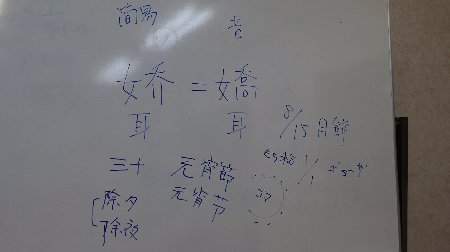 簡易 昔
女乔 = 女喬
耳 耳
8/15 月餅
三十 元宵節
1/1
除夕 元宵节
除夜